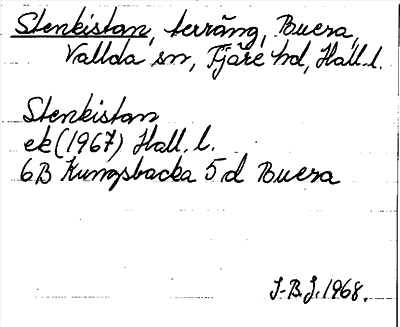 Stenkistan, terräng, Buera,
Vallda sn, Fjäre hd, Hall.l.
Stenkistan
ek (1967) Hall. l.
6B Kungsbacka 5 d Buera
J-B.J. 1968.